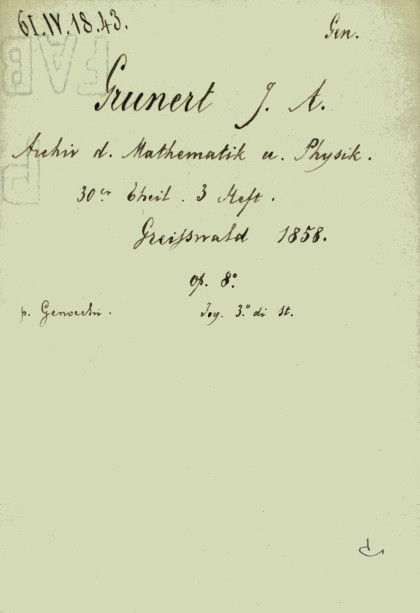 61.IV.18.43.
Gen.
Grunert J. A.
Archiv d. Mathematik u. Physik.
30er Theil. 3 Heft.
Greifswald 1858.
op. 8°
p. Genocchi.
Leg. 3.° di st.